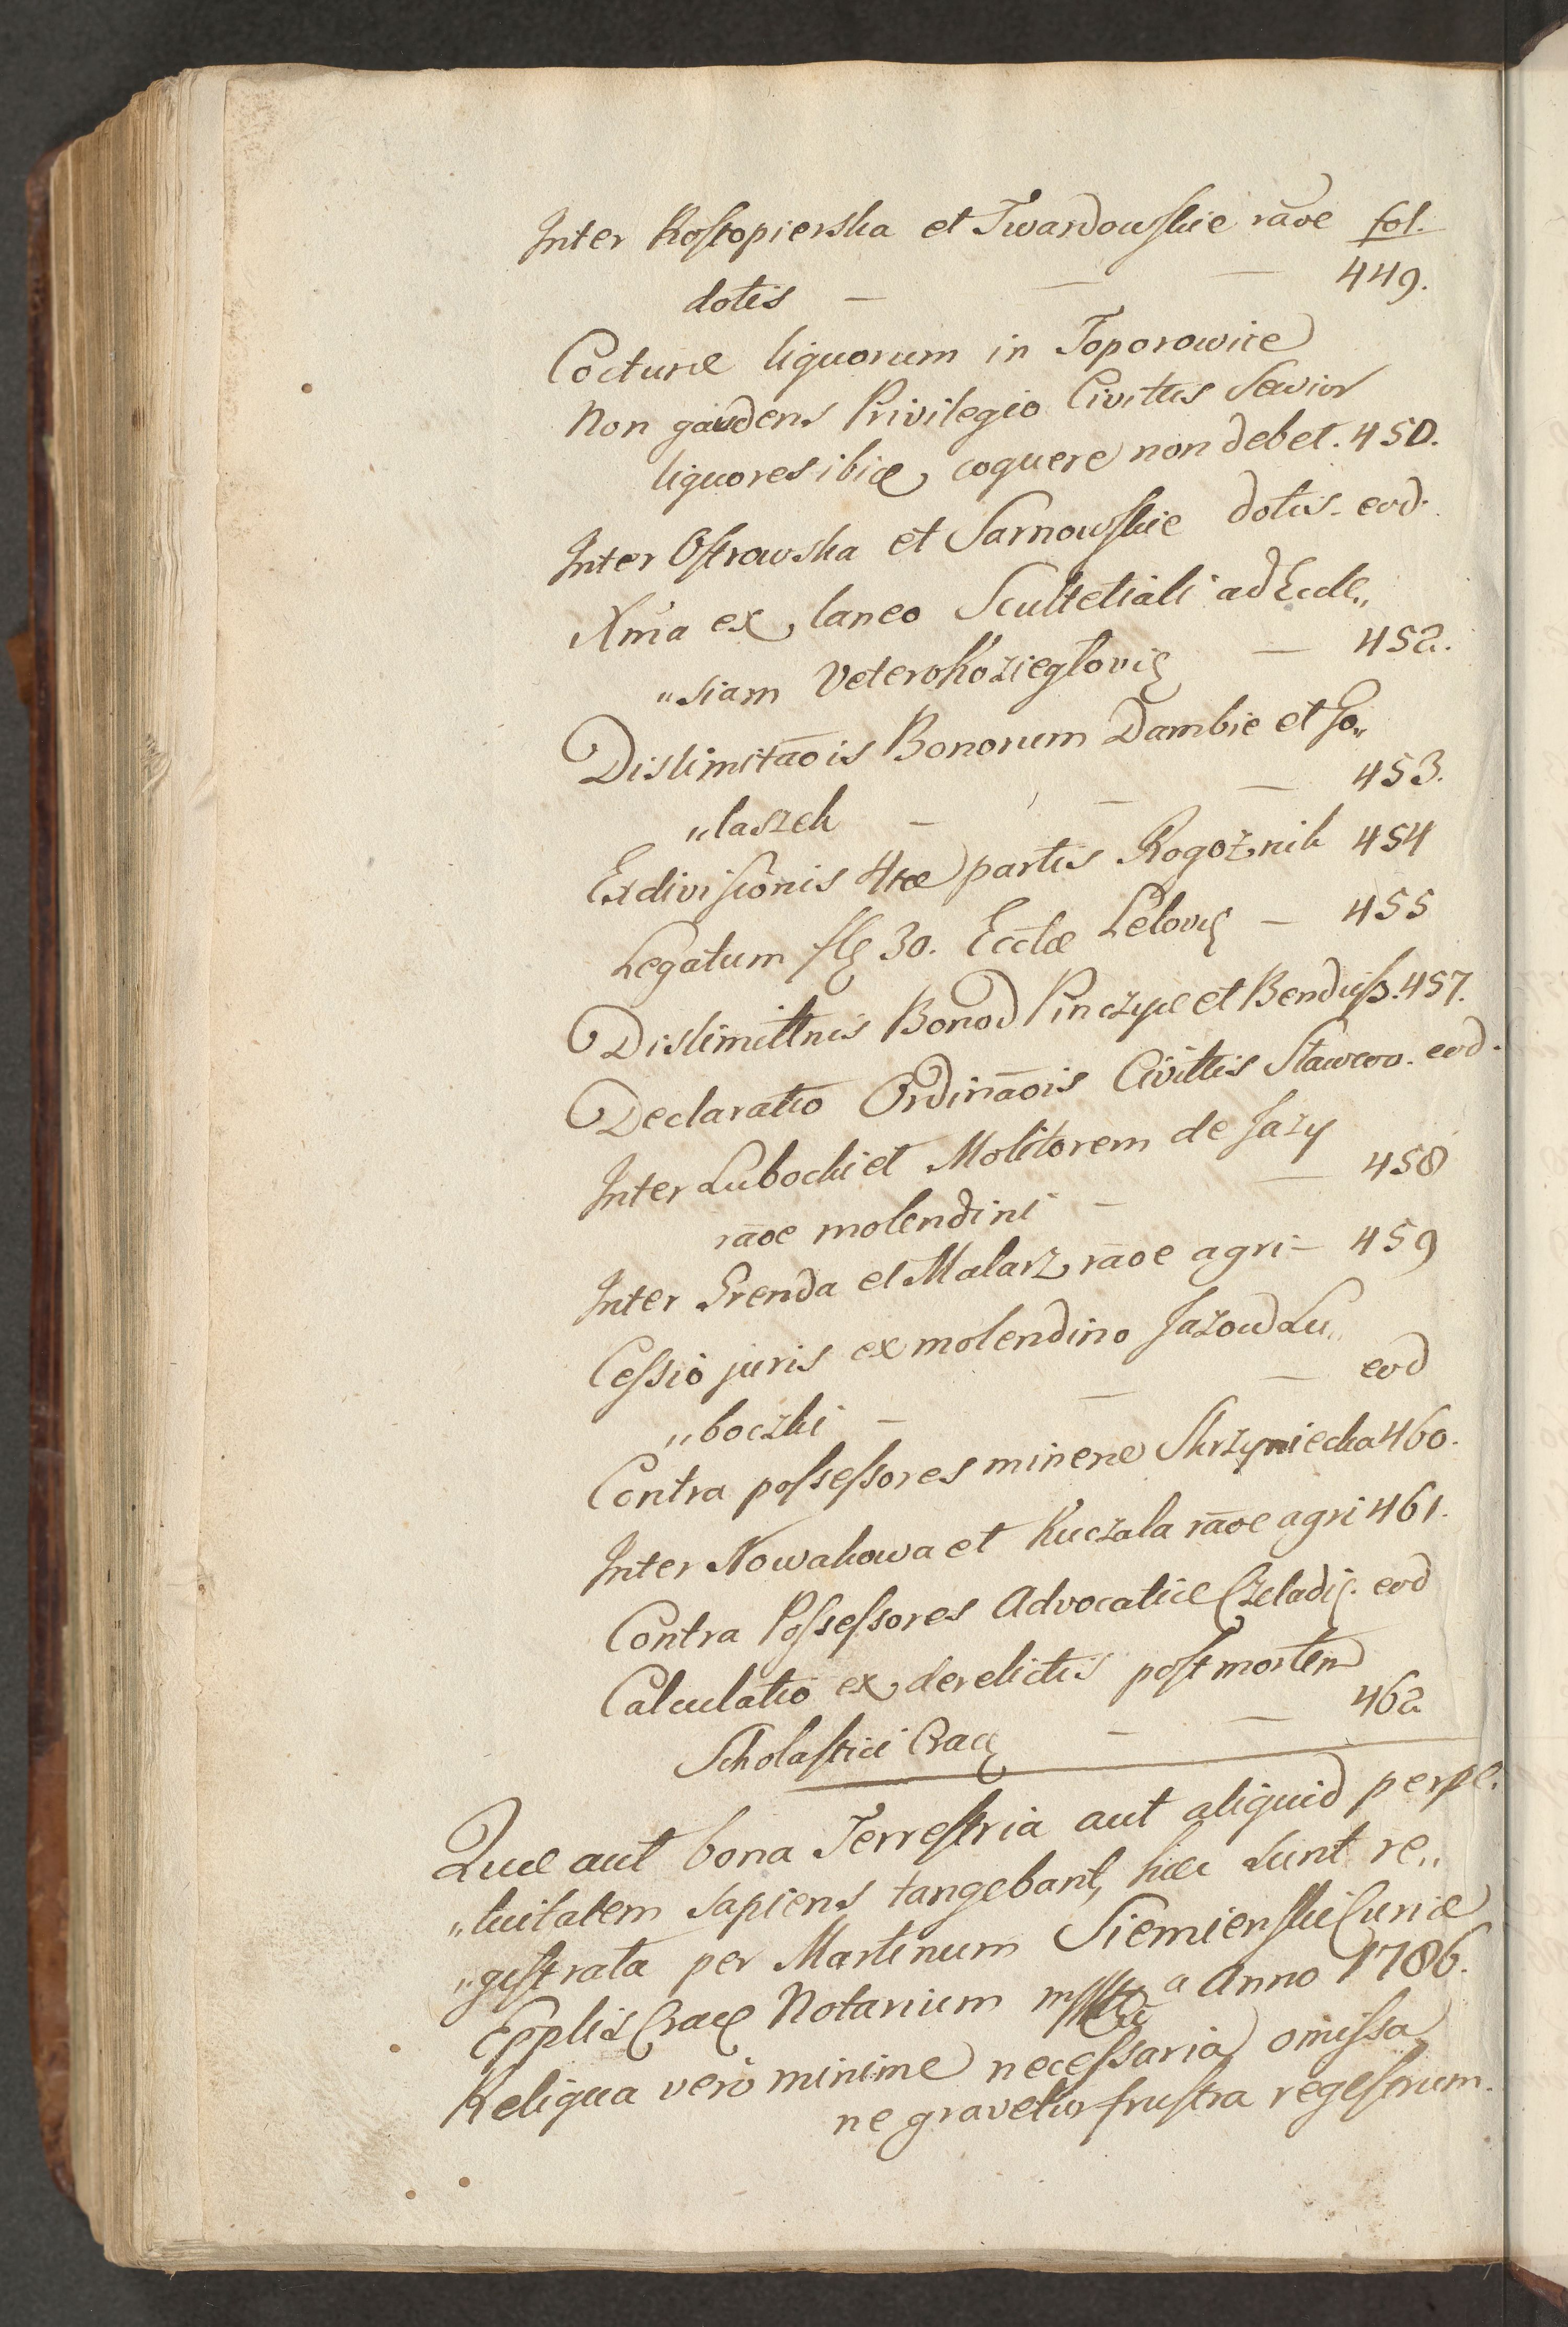 Inter Rostopierska et Twardowskie rãoe fol.
dotis — — — 449.
Cocturæ liquorum in Toporowice
Non gaudens Privilegio Civitis Sevior
liquores ibiq coquere non debet. 450.
Inter Ostrowska et Sarnowskie dotis. eod.
Xma ex laneo Scultetiali ad Eccle„
„siam Veterokozieglovię — 452.
Dislimitãois Bonorum Dambie et Go„
„laszek — — — 453.
Exdivisionis 4tæ partis Rogoznik 454
Legatum flę 30. Ecclæ Lelovię — 455
Dislimittnis Bonod Pinczyce et Bendusz. 457.
Declaratio Ordinãois Civittis Slawcov. eod.
Inter Lubocki et Molitorem de Jazy
rãoe molendini — — 458
Inter Grenda et Malarz rãoe agri — 459
Cessio juris ex molendino Jazowd Lu„
„boczki — — — eod
Contra possessores mineræ Skrzyniecka 460.
Inter Nowakowa et Kuczala rãoe agri 461.
Contra Possessores Advocatiæ Czeladię. eod
Calculatio ex derelictis post mortem
Scholastici Cracę — — 462
Quæ aut bona Terrestria aut aliquid perpe.
„tuitatem sapiens tangebant, hæc sunt re„
„gistrata per Martinum Siemienski Curiæ
Epplis Cracę Notarium a Anno 1786.
Reliqua vero minime necessaria omissa
ne gravetur frustra regestrum.